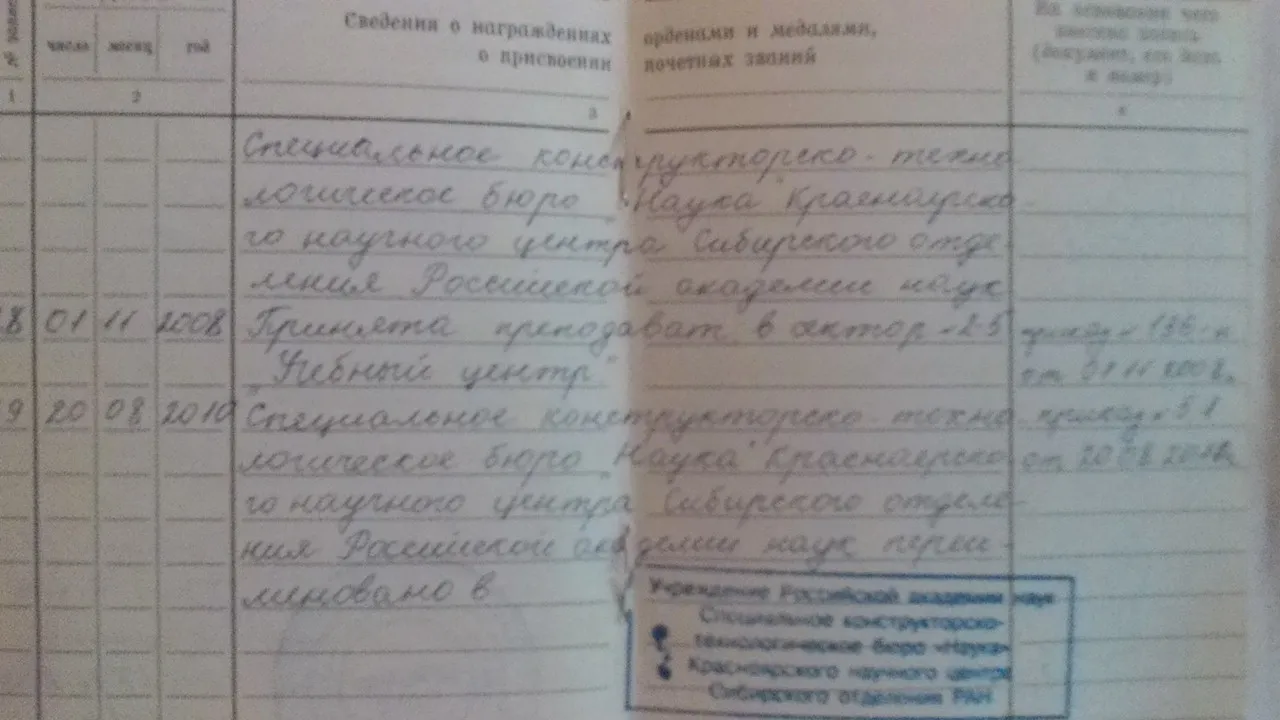 Сведения о награждениях орденами и медалями,
о присвоении почетных званий
На основании чего
внесена запись
(документ, его дата
и номер)
число месяц год
1 2 3 4
Специальное конструкторско-техно
логическое бюро "Наука" Красноярско-
го научного центра Сибирского отде-
ления Российской академии наук
8 01 11 2008 Принята преподават в сектор-2-5 приказ
"Учебный центр" от 01 11 2008
9 20 08 2010 Специальное конструкторско-техно приказ 51
логическое бюро "Наука" Красноярско от 20 08 2010
го научного центра Сибирского отделе-
ния Российской академии наук переи-
меновано в
Учреждение Российской академии наук
Специальное конструкторско-
технологическое бюро «Наука»
Красноярского научного центра
Сибирского отделения РАН